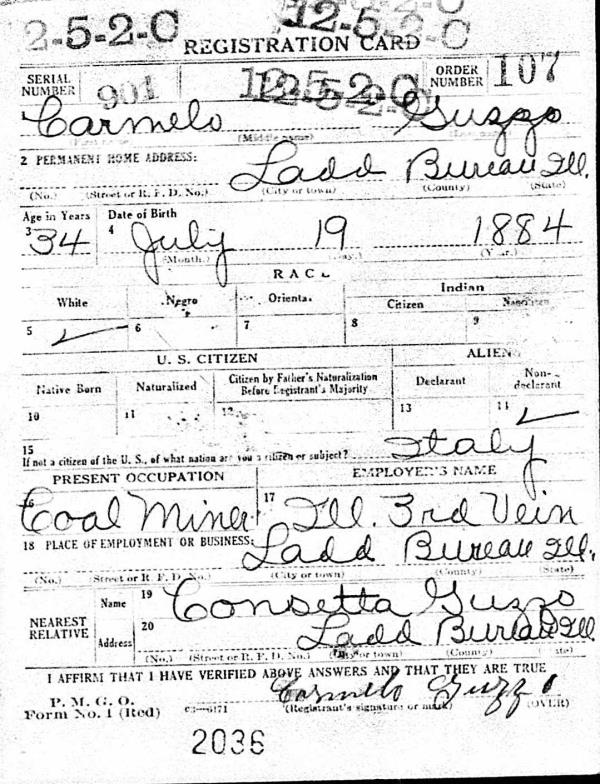 2-5-2-C 12-5-2-C
REGISTRATION CARD
SERIAL NUMBER 901 12-5-2-C ORDER NUMBER 107
Carmelo Guzzo
(First name) (Middle name) (Last name)
2 PERMANENT HOME ADDRESS: Ladd Bureau Ill.
(No.) (Street or R. F. D. No.) (City or town) (County) (State)
Age in Years Date of Birth
3 34 4 July 19 1884
(Month.) (Day.) (Year.)
RACE
White Negro Oriental Indian
Citizen Noncitizen
5 ✓ 6 7 8 9
U. S. CITIZEN ALIEN
Native Born Naturalized Citizen by Father's Naturalization Before Registrant's Majority Declarant Non-declarant
10 11 12 13 14 ✓
15
If not a citizen of the U. S., of what nation are you a citizen or subject? Italy
PRESENT OCCUPATION EMPLOYER'S NAME
16 Coal Miner 17 Ill. 3rd Vein
18 PLACE OF EMPLOYMENT OR BUSINESS: Ladd Bureau Ill.
(No.) (Street or R. F. D. No.) (City or town) (County) (State)
NEAREST RELATIVE Name 19 Consetta Guzzo
Address 20 Ladd Bureau Ill.
(No.) (Street or R. F. D. No.) (City or town) (County) (State)
I AFFIRM THAT I HAVE VERIFIED ABOVE ANSWERS AND THAT THEY ARE TRUE
P. M. G. O.
Form No. 1 (Red) 03—6171 Carmelo Guzzo
(Registrant's signature or mark) (OVER)
2036